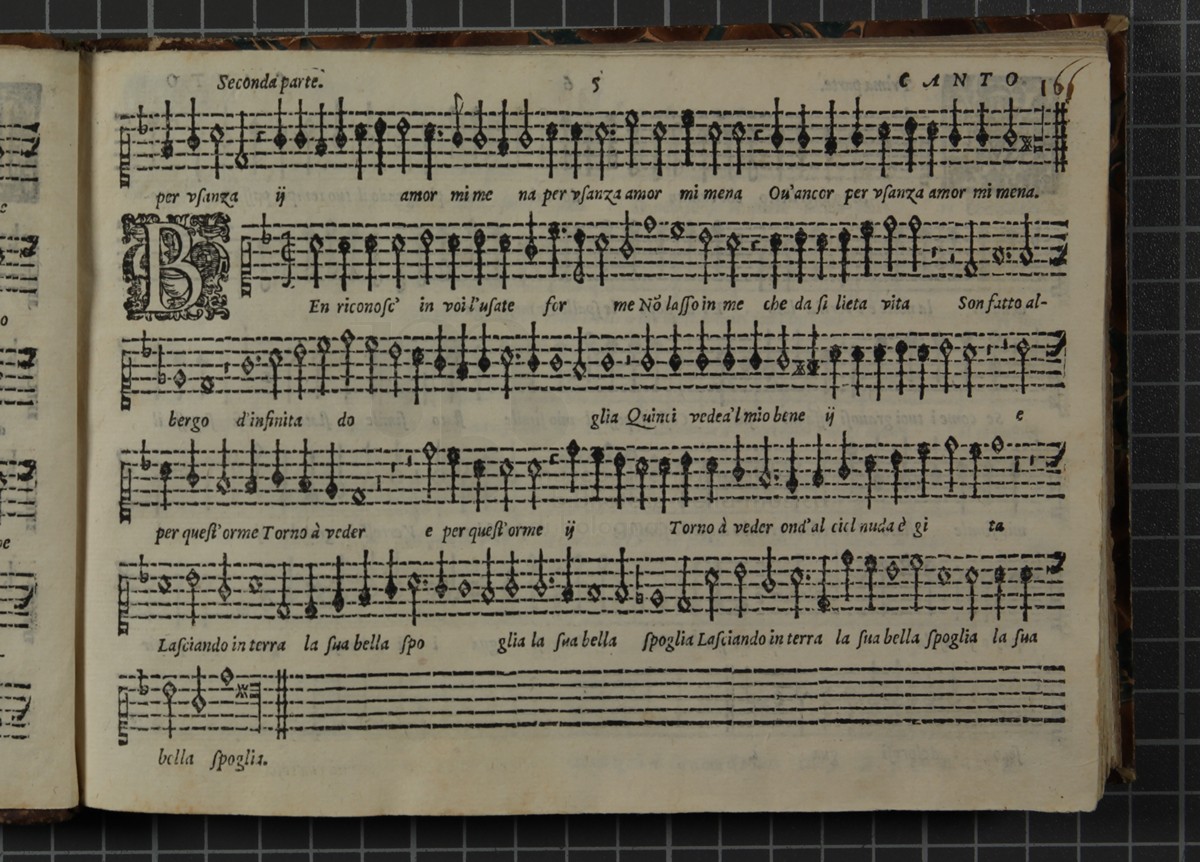 Seconda parte. 5 CANTO 166
per vſanza ij amor mi me na per vſanza amor mi mena Ou'ancor per vſanza amor mi mena.
BEn riconoſc' in voi l'uſate for me Nō laſſo in me che da ſi lieta vita Son fatto al-
bergo d'infinita do glia Quinci vedea'l mio bene ij e
per queſt'orme Torno à veder e per queſt'orme ij Torno à veder ond'al ciel nuda è gi ta
Laſciando in terra la ſua bella ſpo glia la ſua bella ſpoglia Laſciando in terra la ſua bella ſpoglia la ſua
bella ſpoglia.